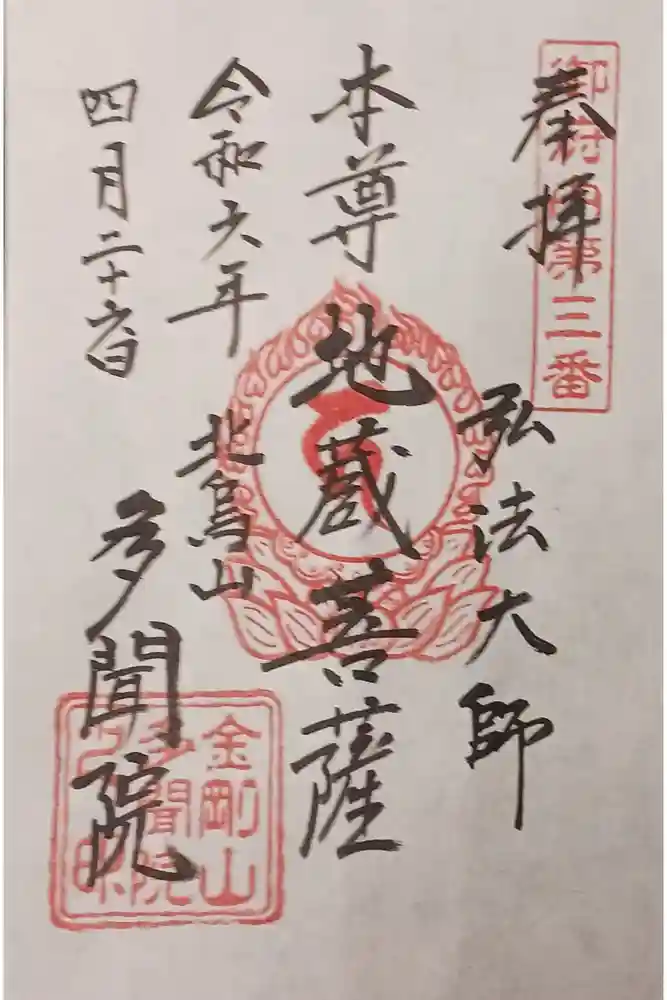 奉拝
御府内第三番
弘法大師
本尊
地蔵菩薩
令和六年
北烏山
四月二十六日
多聞院
金剛山
多聞院